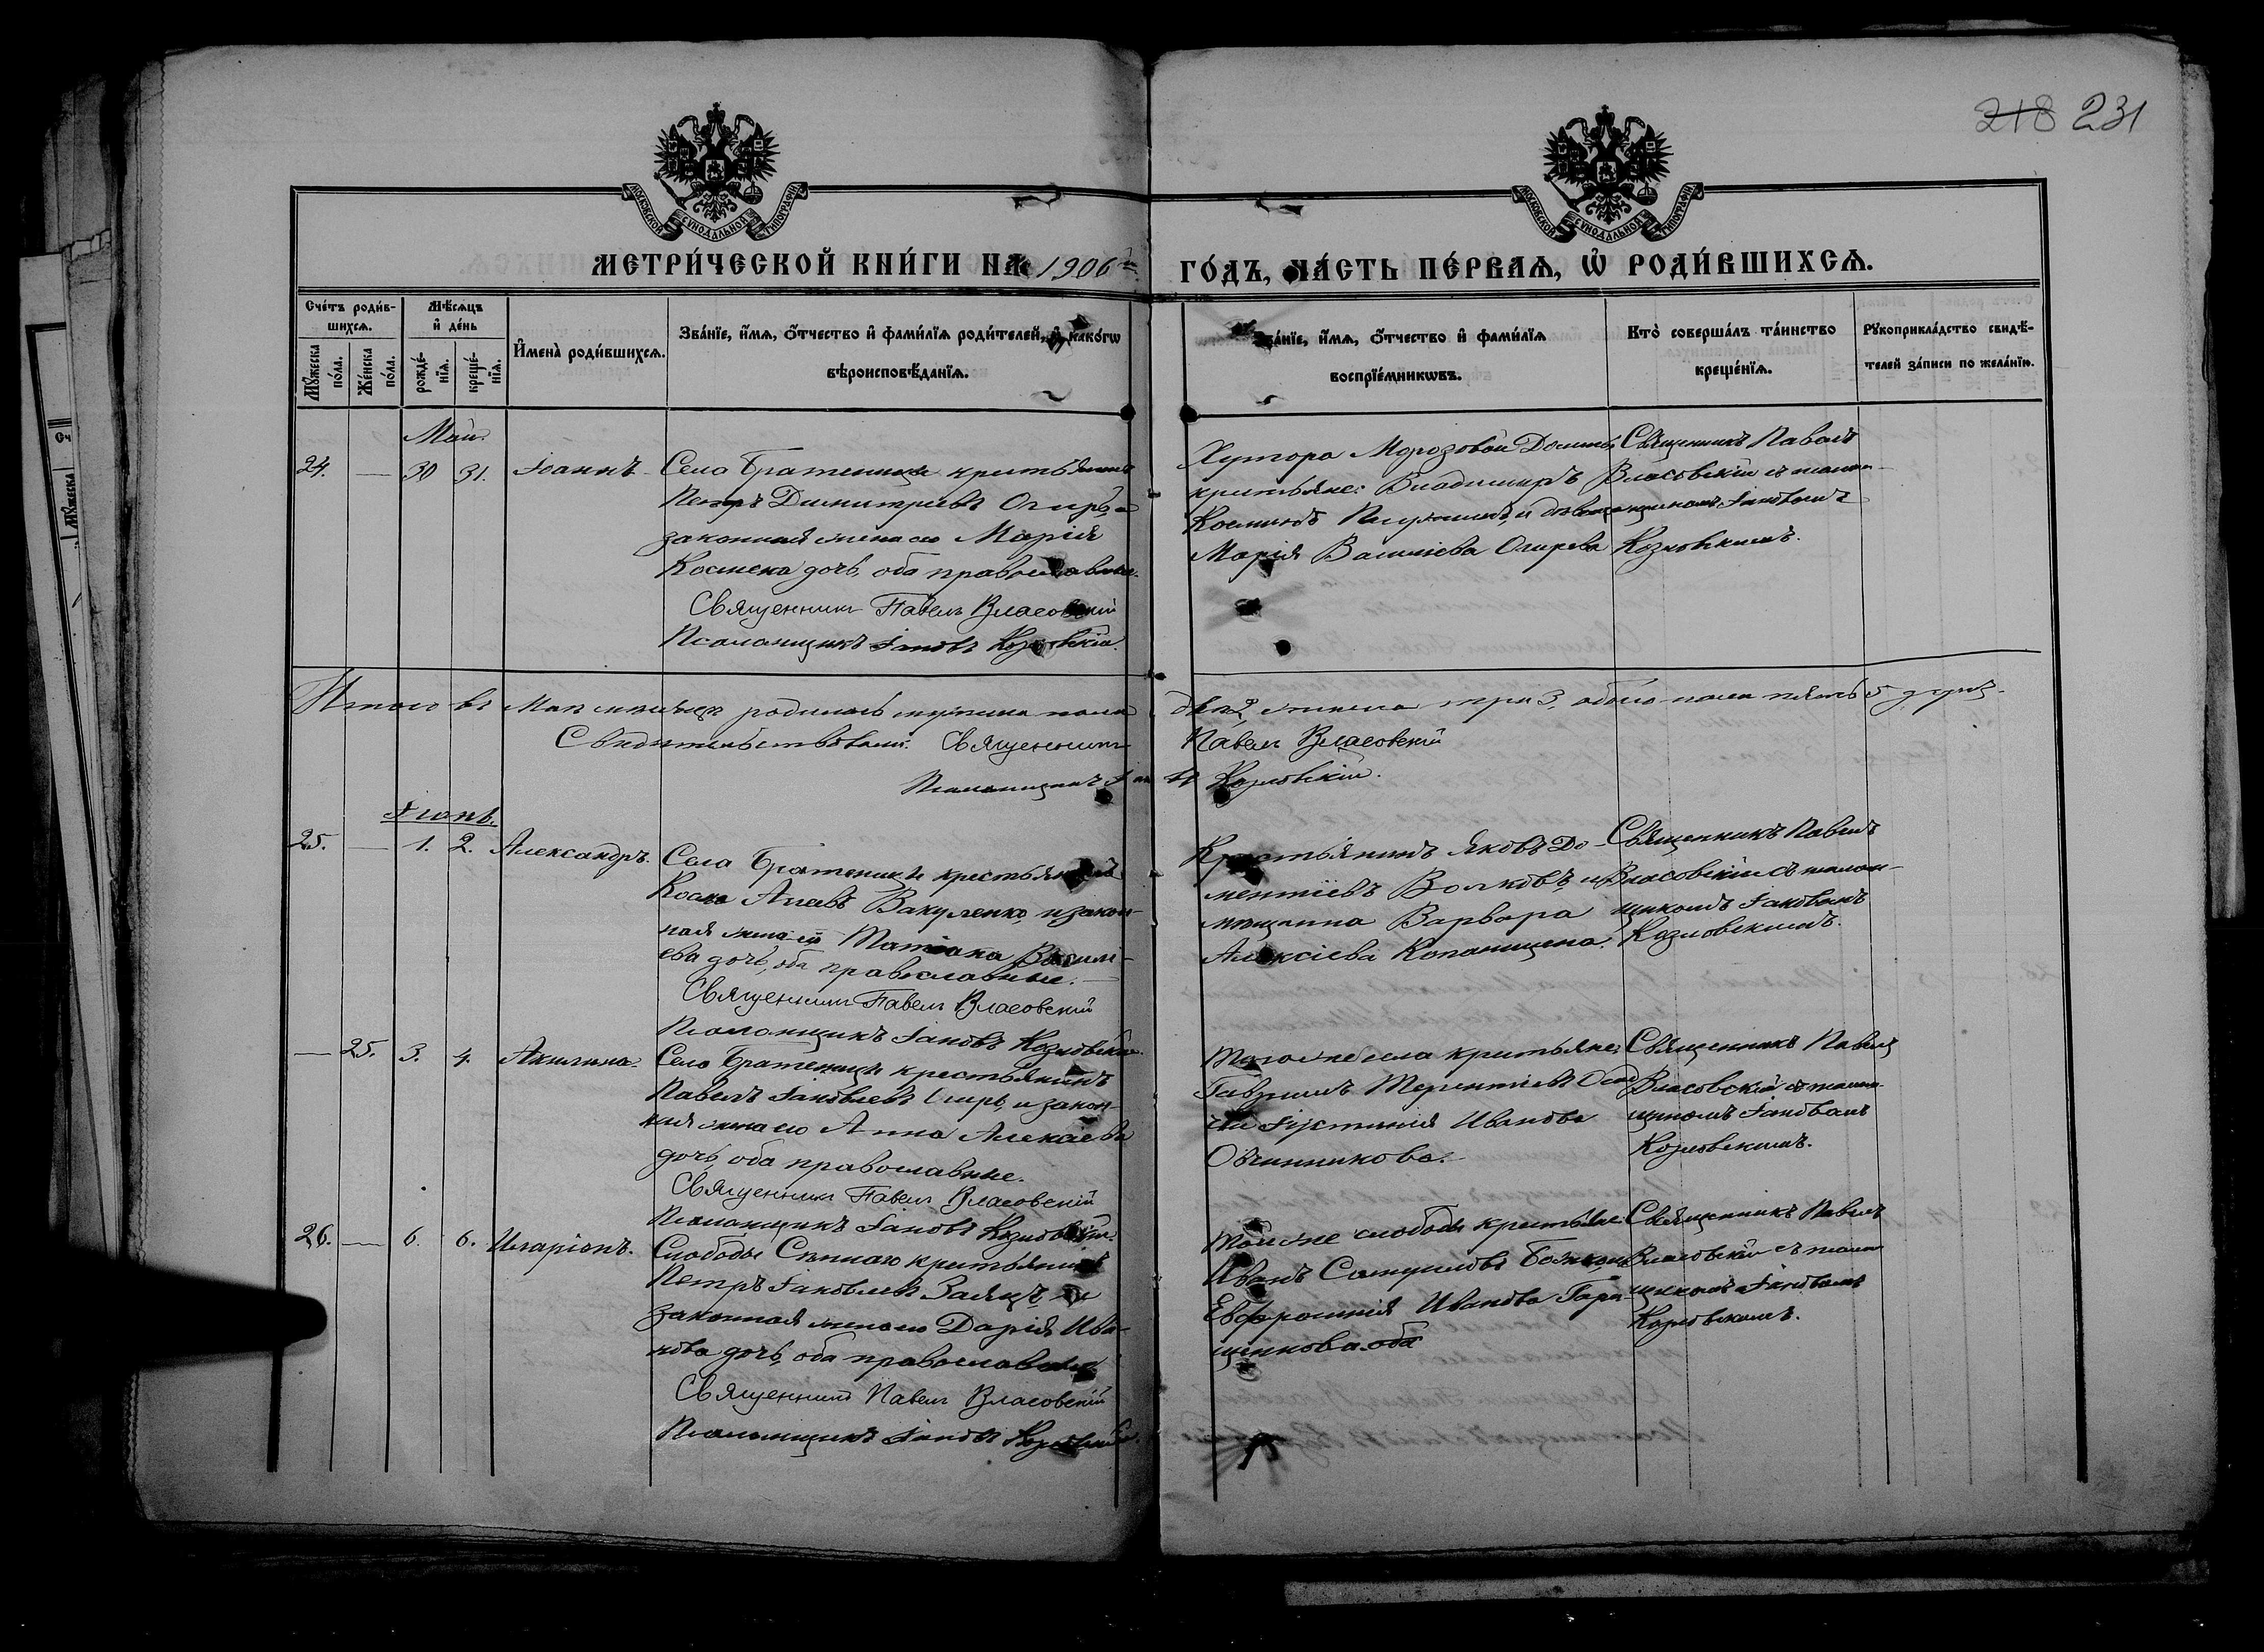 218 231
МОСКОВСКОЙ СѴНОДАЛЬНОЙ ТИПОГРАФІИ
МОСКОВСКОЙ СѴНОДАЛЬНОЙ ТИПОГРАФІИ
МЕТРИ́ЧЕСКОЙ КНИ́ГИ НА 1906 й
ГО́ДЪ, ЧА́СТЬ ПЕ́РВАѦ, Ѡ҆ РОДИ́ВШИХСѦ.
Сче́тъ роди́в-
шихсѧ.
Мꙋ́жеска по́ла.
Же́нска по́ла.
Мѣ́сѧцъ
и҆ де́нь
рожде́-нїѧ.
креще́-нїѧ.
И҆мена̀ роди́вшихсѧ.
Зва́нїе, и҆́мѧ, ѻ҆́тчество и҆ фами́лїѧ роди́телей, и҆ како́гѡ
вѣроисповѣ́данїѧ.
Зва́нїе, и҆́мѧ, ѻ҆́тчество и҆ фами́лїѧ
воспрїе́мникѡвъ.
Кто̀ соверша́лъ та́инство
креще́нїѧ.
Рꙋкоприкла́дство свидѣ́-
телей за́писи по жела́нїю.
Май.
24. — 30 31. Іоаннъ
Села Братеница крестьянинъ
Петръ Димитріевъ Огирь, и
законная жена его Марія
Космена дочь, оба православные.
Священникъ Павелъ Власовскій
Псаломщикъ Іаковъ Козловскій.
Хутора Морозовой Долины
крестьяне: Владиміръ
Косминъ и девица
Марія Василіева Огирева
Священникъ Павелъ
Власовскій съ псалом-
щикомъ Іаковомъ
Козловскимъ.
Итого въ Маѣ мѣсяцѣ родилось мужеска пола
два 2, женска три 3, обоего пола пять 5 душъ.
Свидѣтельствовали: Священникъ Павелъ Власовскій
Псаломщикъ Іаковъ Козловскій.
Іюнь.
25. — 1. 2. Александръ.
Села Братеница крестьянинъ
Косма Вакуленко, и закон-
ная жена его Татіана Василі-
ева дочь, оба православные.
Священникъ Павелъ Власовскій
Псаломщикъ Іаковъ Козловскій.
Крестьянинъ Яковъ До-
ментіевъ Волковъ и
мѣщанка Варвара
Алексіева Копанищена.
Священникъ Павелъ
Власовскій съ псалом-
щикомъ Іаковомъ
Козловскимъ.
— 25. 3. 4. Акилина.
Села Братеница крестьянинъ
Павелъ Іаковлевъ Огирь, и закон-
ная жена его Анна Алексіева
дочь, оба православные.
Священникъ Павелъ Власовскій
Псаломщикъ Іаковъ Козловскій.
Того же села крестьяне:
Гавріилъ Терентіевъ
Іустинія Иванова
Овчинникова.
Священникъ Павелъ
Власовскій съ псалом-
щикомъ Іаковомъ
Козловскимъ.
26. — 6. 6. Иларіонъ.
Слободы Сѣнного крестьянинъ
Петръ Іаковлевъ Заяцъ, и
законная жена его Дарія Ива-
нова дочь, оба православные.
Священникъ Павелъ Власовскій
Псаломщикъ Іаковъ Козловскій.
Той же слободы крестьяне:
Иванъ Самуиловъ Божко и
Евфросинія Иванова Гара-
щенкова. оба
Священникъ Павелъ
Власовскій съ псалом-
щикомъ Іаковомъ
Козловскимъ.